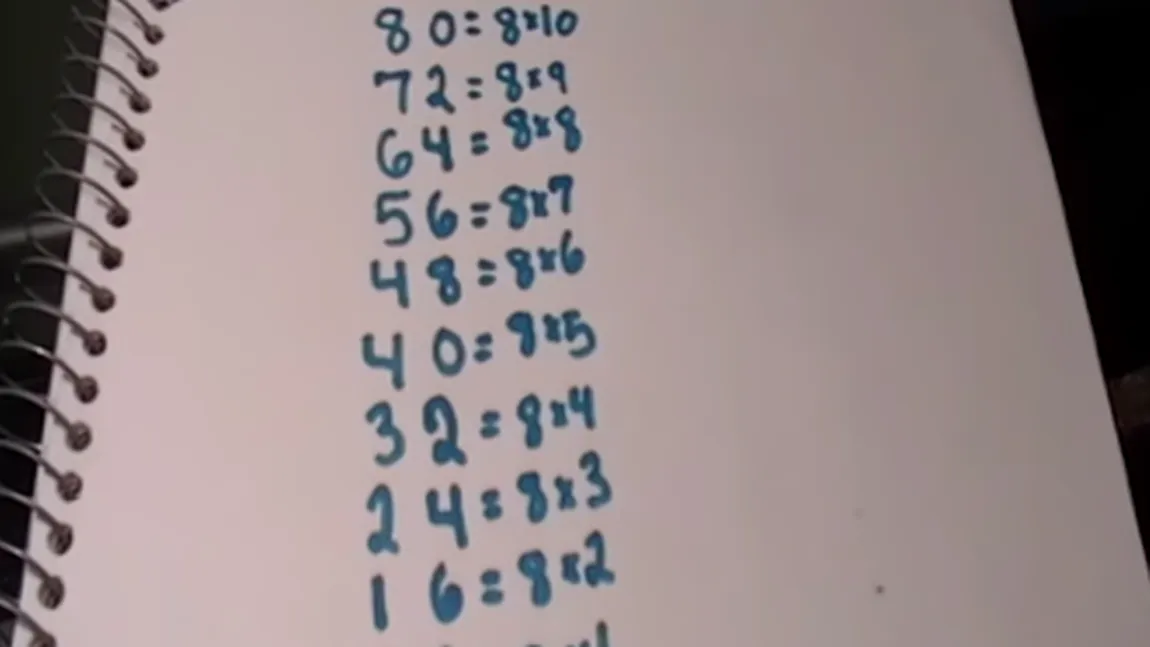 80=8x10
72=8x9
64=8x8
56=8x7
48=8x6
40=8x5
32=8x4
24=8x3
16=8x2